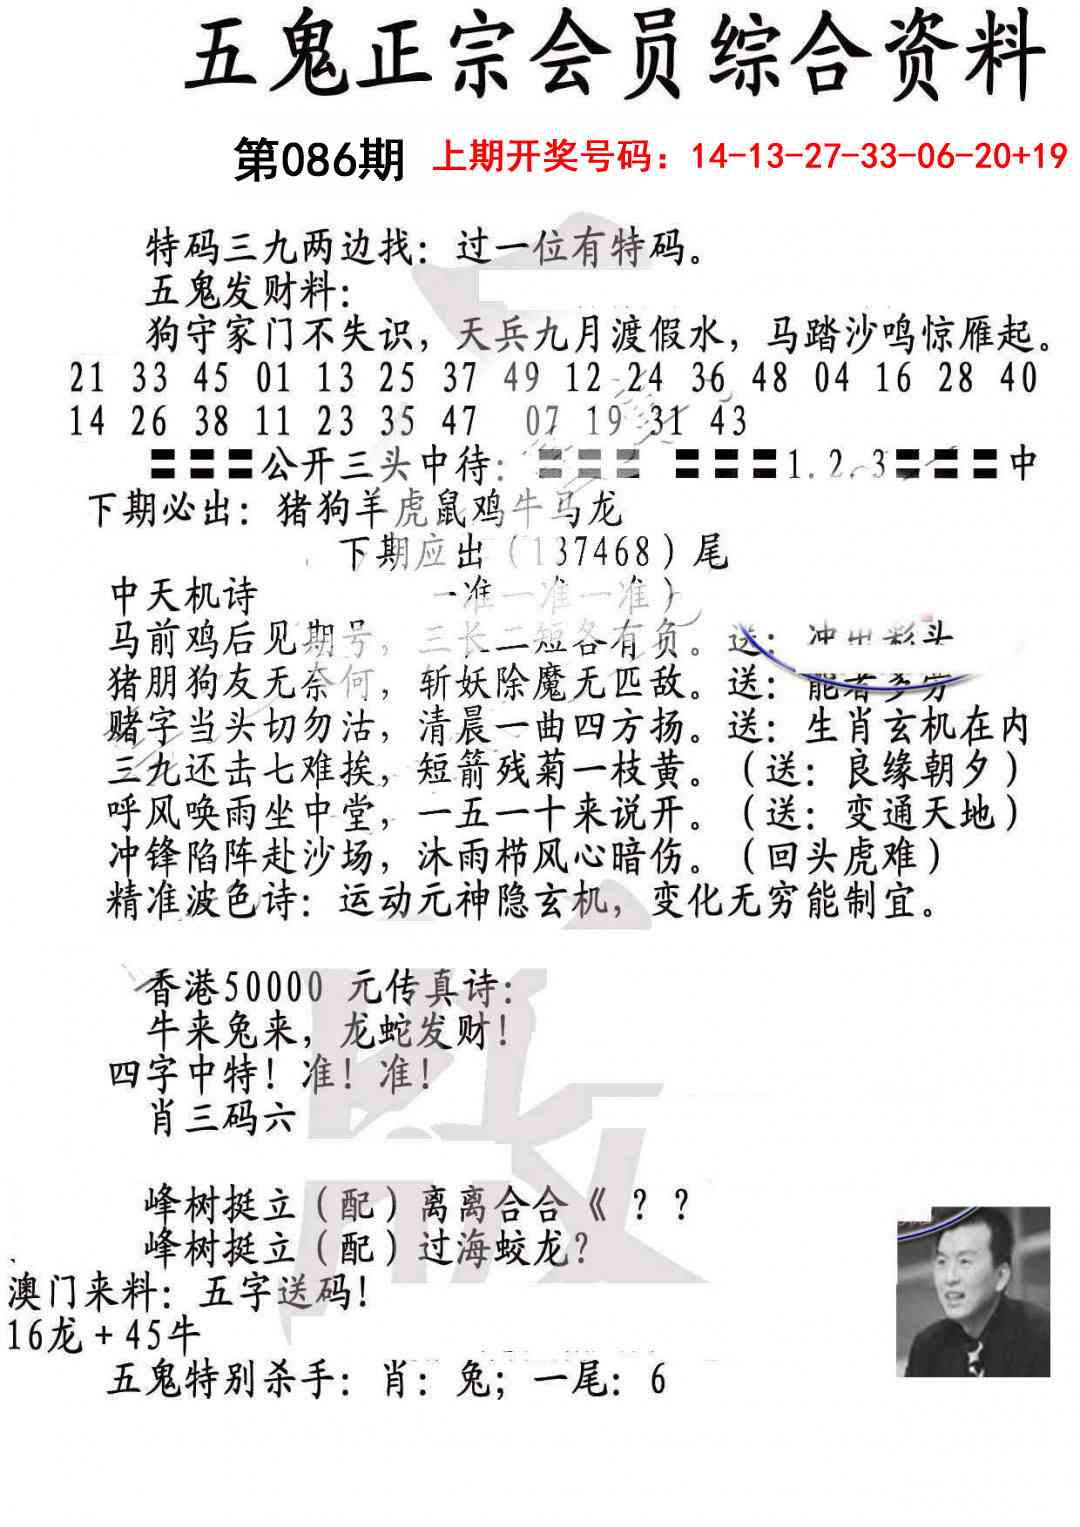 五鬼正宗会员综合资料
第086期 上期开奖号码：14-13-27-33-06-20+19
特码三九两边找：过一位有特码。
五鬼发财料：
狗守家门不失识，天兵九月渡假水，马踏沙鸣惊雁起。
21 33 45 01 13 25 37 49 12 24 36 48 04 16 28 40
14 26 38 11 23 35 47 07 19 31 43
〓〓〓公开三头中待：〓〓〓 〓〓〓1.2.3〓〓〓中
下期必出：猪狗羊虎鼠鸡牛马龙
下期应出（137468）尾
中天机诗 一准一准一准）
马前鸡后见期号，三长二短各有负。送：冲出彩头
猪朋狗友无奈何，斩妖除魔无匹敌。送：能者多劳
赌字当头切勿沽，清晨一曲四方扬。送：生肖玄机在内
三九还击七难挨，短箭残菊一枝黄。（送：良缘朝夕）
呼风唤雨坐中堂，一五一十来说开。（送：变通天地）
冲锋陷阵赴沙场，沐雨栉风心暗伤。（回头虎难）
精准波色诗：运动元神隐玄机，变化无穷能制宜。
香港50000 元传真诗：
牛来兔来，龙蛇发财！
四字中特！准！准！
肖三码六
峰树挺立（配）离离合合《？？
峰树挺立（配）过海蛟龙？
澳门来料：五字送码！
16龙+45牛
五鬼特别杀手：肖：兔；一尾：6